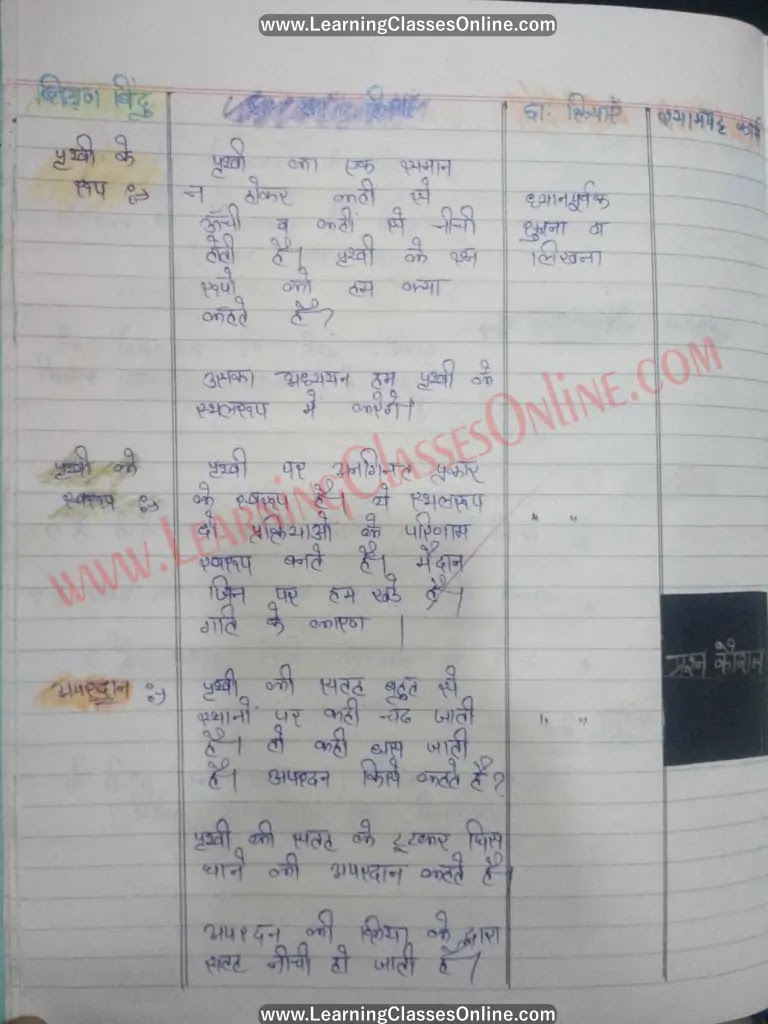 www.LearningClassesOnline.com
शिक्षण बिंदु
क्रियाएँ
छा. क्रियाएँ
श्यामपट्ट कार्य
पृथ्वी के
रूप :->
पृथ्वी का एक समान
न होकर कहीं से
ऊँची व कहीं से नीची
होती है। पृथ्वी के इन
रूपों को हम क्या
कहते हैं?
ध्यानपूर्वक
सुनना व
लिखना
उसका अध्ययन हम पृथ्वी के
स्थलरूप में करेंगे।
पृथ्वी के
स्वरूप :->
पृथ्वी पर अनगिनत प्रकार
के स्वरूप हैं। ये स्थलरूप
दो प्रक्रियाओं के परिणाम
स्वरूप बनते है। मैदान
जिन पर हम खड़े हैं।
गति के कारण ।
" "
www.LearningClassesOnline.com
प्रश्न कौशल
अपरदान :->
पृथ्वी की सतह बहुत से
स्थानों पर कही चढ जाती
है। तो कही धस जाती
है। अपरदन किसे कहते है?
" "
पृथ्वी की सतह के टूटकर घिस
धाने को अपरदान कहते है।
अपरदन की क्रिया के द्वारा
सतह नीची हो जाती है।
www.LearningClassesOnline.com